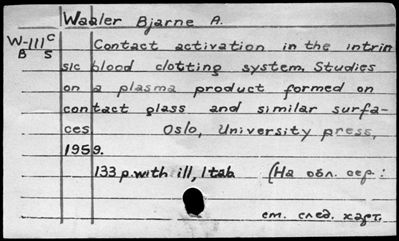 Waaler Bjarne A.
W-111 c
B s
Contact activation in the intrin
sic blood clotting system. Studies
on a plasma product formed on
contact glass and similar surfa-
ces Oslo, University press,
1959.
133 p. with ill, 1 tab (На обл. сер.:
см. след. карт.